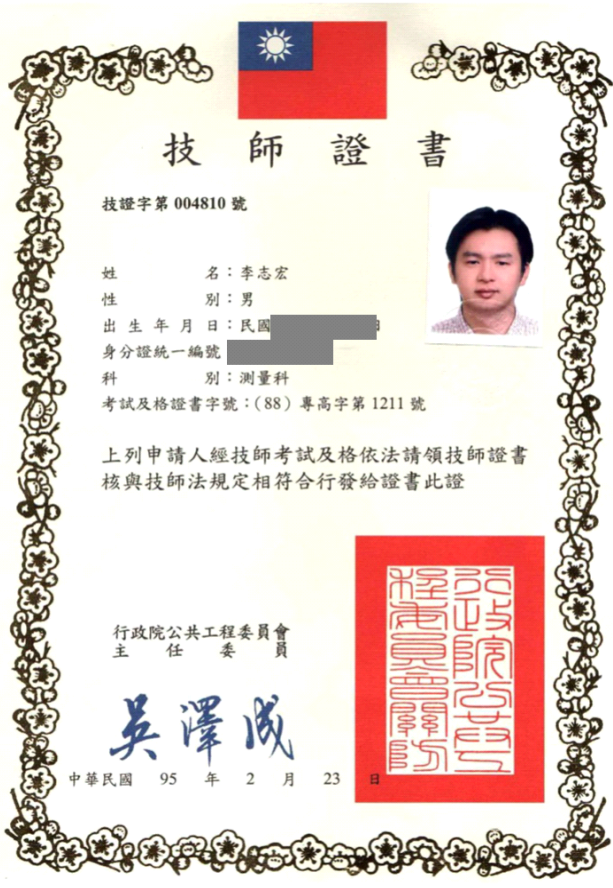 技師證書
技證字第 004810 號
姓名：李志宏
性別：男
出生年月日：民國 日
身分證統一編號
科別：測量科
考試及格證書字號：(88) 專高字第 1211 號
上列申請人經技師考試及格依法請領技師證書
核與技師法規定相符合行發給證書此證
行政院公共工程委員會
主任委員
吳澤成
行政院公共工
程委員會關防
中華民國 95 年 2 月 23 日